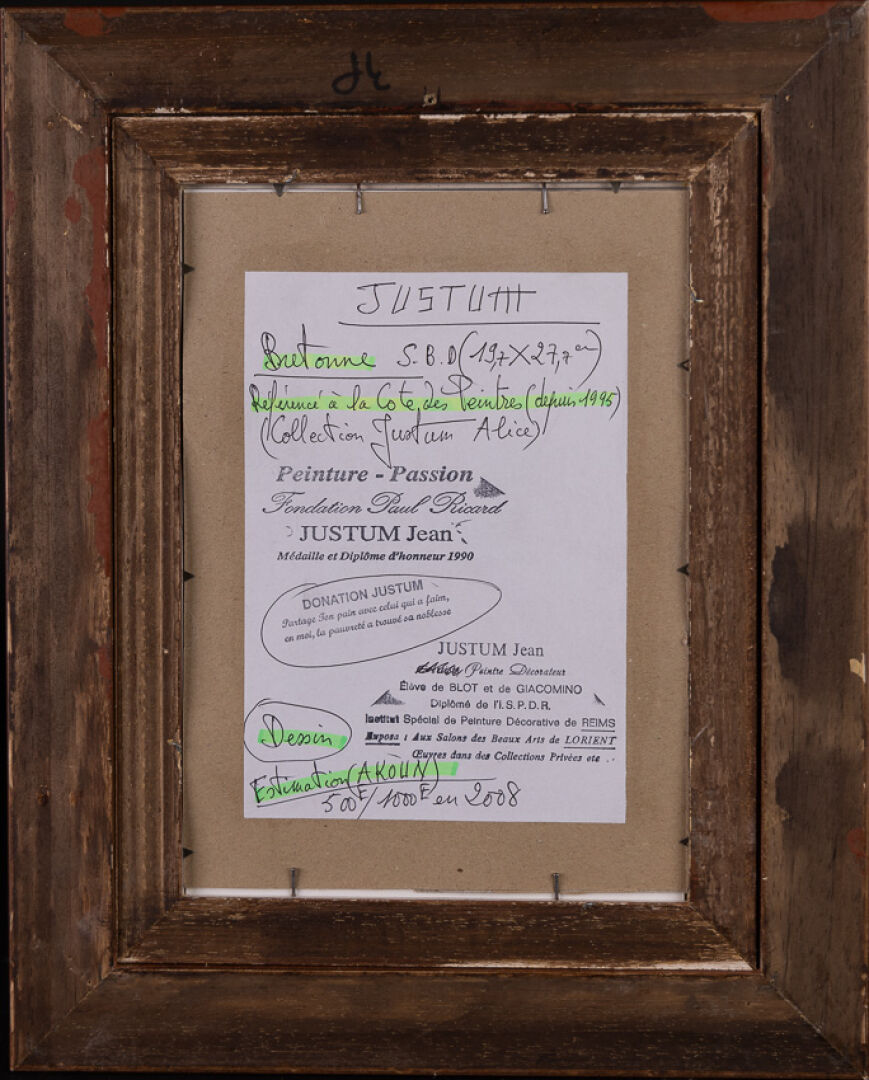 JUSTUM
Bretonne S.B.D (19,7 X 27,7 cm)
Référencé à la Cote des Peintres (depuis 1995)
(Collection Justum Alice)
Peinture - Passion
Fondation Paul Ricard
JUSTUM Jean
Médaille et Diplôme d'honneur 1990
DONATION JUSTUM
Partage Ton pain avec celui qui a faim,
en moi, la pauvreté a trouvé sa noblesse
JUSTUM Jean
Peintre Décorateur
Élève de BLOT et de GIACOMINO
Diplômé de l'I.S.P.D.R.
Institut Spécial de Peinture Décorative de REIMS
Expose : Aux Salons des Beaux Arts de LORIENT
Œuvres dans des Collections Privées etc ..
Dessin
Estimation (AKOUN)
500E/1000E en 2008